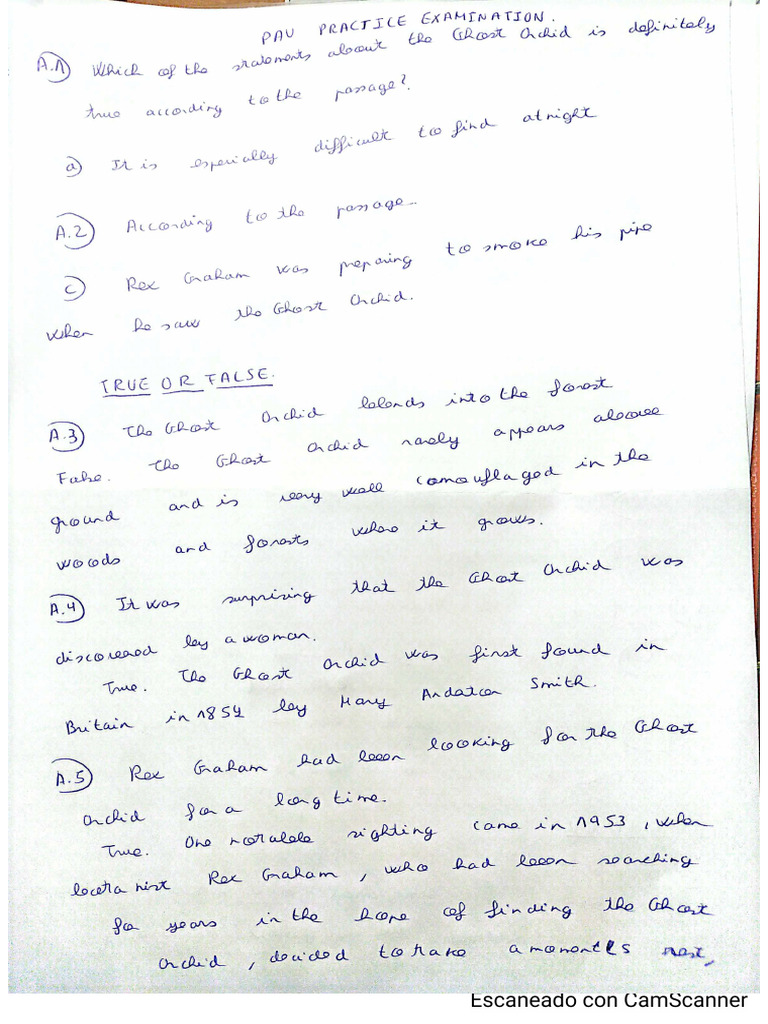 PAU PRACTICE EXAMINATION.
A.1 Which of the statements about the Ghost Orchid is definitely
true according to the passage?
a) It is especially difficult to find at night
A.2 According to the passage...
c) Rex Graham was preparing to smoke his pipe
when he saw the Ghost Orchid.
TRUE OR FALSE.
A.3 The Ghost Orchid blends into the forest
False. The Ghost Orchid rarely appears above
ground and is very well camouflaged in the
woods and forests where it grows.
A.4 It was surprising that the Ghost Orchid was
discovered by a woman.
True. The Ghost Orchid was first found in
Britain in 1854 by Mary Andaton Smith.
A.5 Rex Graham had been looking for the Ghost
Orchid for a long time.
True. One notable sighting came in 1953, when
botanist Rex Graham, who had been searching
for years in the hope of finding the Ghost
Orchid, decided to take a moment's rest,
Escaneado con CamScanner